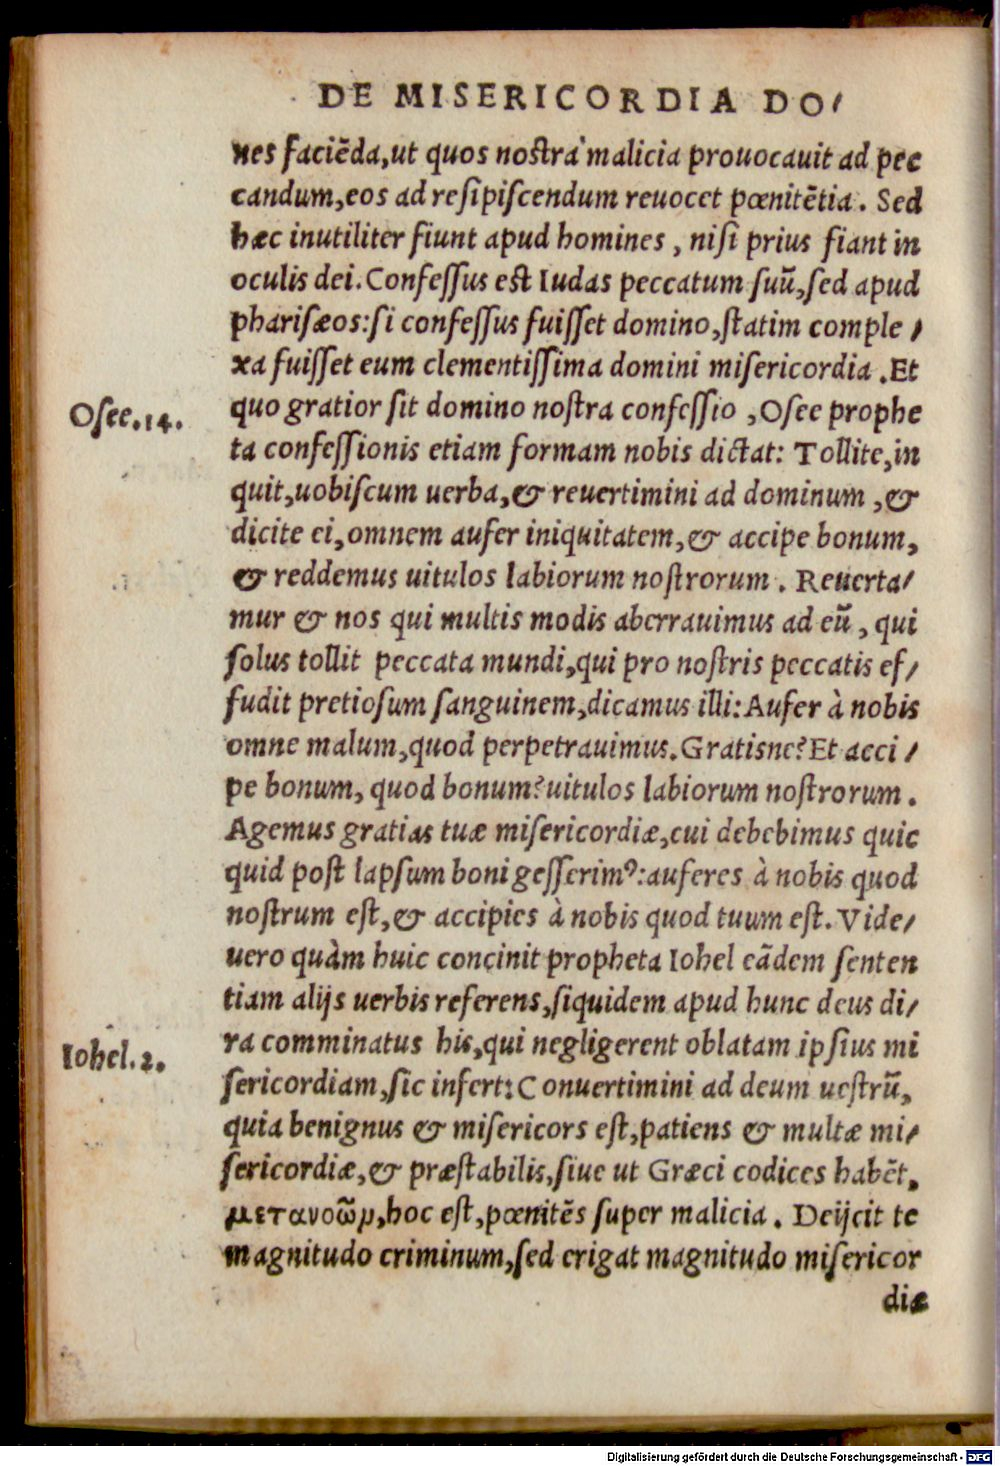 DE MISERICORDIA DO/
nes faciēda,ut quos nostra malicia prouocauit ad pec
candum,eos ad resipiſcendum reuocet pœnitētia. Sed
hæc inutiliter fiunt apud homines , niſi prius fiant in
oculis dei.Confeſſus est Iudas peccatum ſuū,ſed apud
phariſæos:ſi confeſſus fuiſſet domino,ſtatim comple /
xa fuiſſet eum clementiſſima domini miſericordia .Et
Oſee.14.
quo gratior ſit domino noſtra confeſſio ,Oſee prophe
ta confeſſionis etiam formam nobis dictat: Tollite,in
quit,uobiſcum uerba,& reuertimini ad dominum ,&
dicite ei,omnem aufer iniquitatem,& accipe bonum,
& reddemus uitulos labiorum noſtrorum . Reuerta/
mur & nos qui multis modis aberrauimus ad eū , qui
ſolus tollit peccata mundi,qui pro noſtris peccatis ef/
fudit pretioſum ſanguinem,dicamus illi:Aufer à nobis
omne malum,quod perpetrauimus.Gratisne?Et acci /
pe bonum, quod bonum?uitulos labiorum noſtrorum .
Agemus gratias tuæ miſericordiæ,cui debebimus quic
quid poſt lapſum boni geſſerimꝰ:auferes à nobis quod
noſtrum eſt,& accipies à nobis quod tuum eſt. Vide/
uero quàm huic concinit propheta Iohel eādem ſenten
tiam alijs uerbis referens,ſiquidem apud hunc deus di/
Iohel.2.
ra comminatus his,qui negligerent oblatam ipſius mi
ſericordiam,ſic infert:Conuertimini ad deum ueſtrū,
quia benignus & miſericors eſt,patiens & multæ mi/
ſericordiæ,& præſtabilis,ſiue ut Græci codices habēt,
μετανοῶν,hoc eſt,pœnitēs ſuper malicia . Deijcit te
magnitudo criminum,ſed erigat magnitudo miſericor
diæ
Digitalisierung gefördert durch die Deutsche Forschungsgemeinschaft - DFG